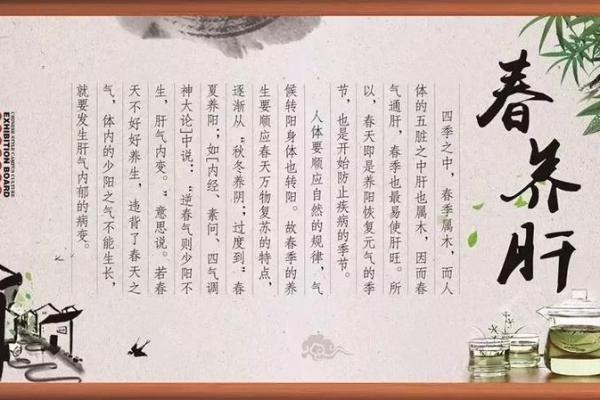 春养肝
四季之中，春季属木，而人
体的五脏之中肝也属木，因而春
气通肝，春季也最易使肝旺。所
以，春天即是养阳恢复元气的季
节，也是开始防止疾病的季节。
人体要顺应自然的规律，气
候转阳身体也转阳。故春季的养
生要顺应春天万物复苏的特点，
逐渐从“秋冬养阴；过度到“春
夏养阳；如[内经、素问、四气调
神大论]中说：“逆春气则少阳不
生，肝气内变。”意思说。若春
天不好好养生，违背了春天之
气，体内的少阳之气不能生长，
就要发生肝气内郁的病变。
EXHIBITION BOARD